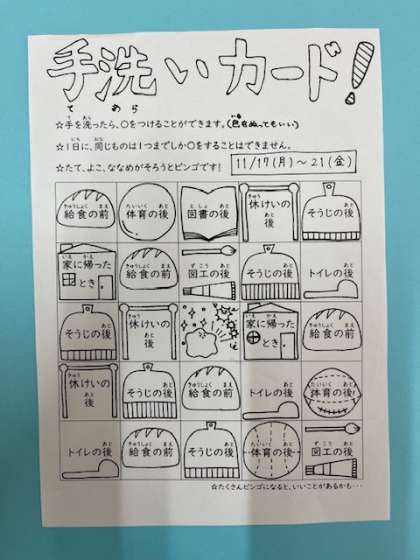 手洗いカード!
て あら
☆手を洗ったら、○をつけることができます。(色をぬってもいい)
☆1日に、同じものは1つまでしか○をすることはできません。
☆たて、よこ、ななめがそろうとビンゴです! 11/17(月)～21(金)
給食の前 体育の後 図書の後 休けいの後 そうじの後
家に帰ったとき 給食の前 図工の後 そうじの後 トイレの後
そうじの後 休けいの後 家に帰ったとき 給食の前
休けいの後 そうじの後 給食の前 トイレの後 体育の後
トイレの後 給食の前 そうじの後 体育の後 図工の後
☆たくさんビンゴになると、いいことがあるかも・・・